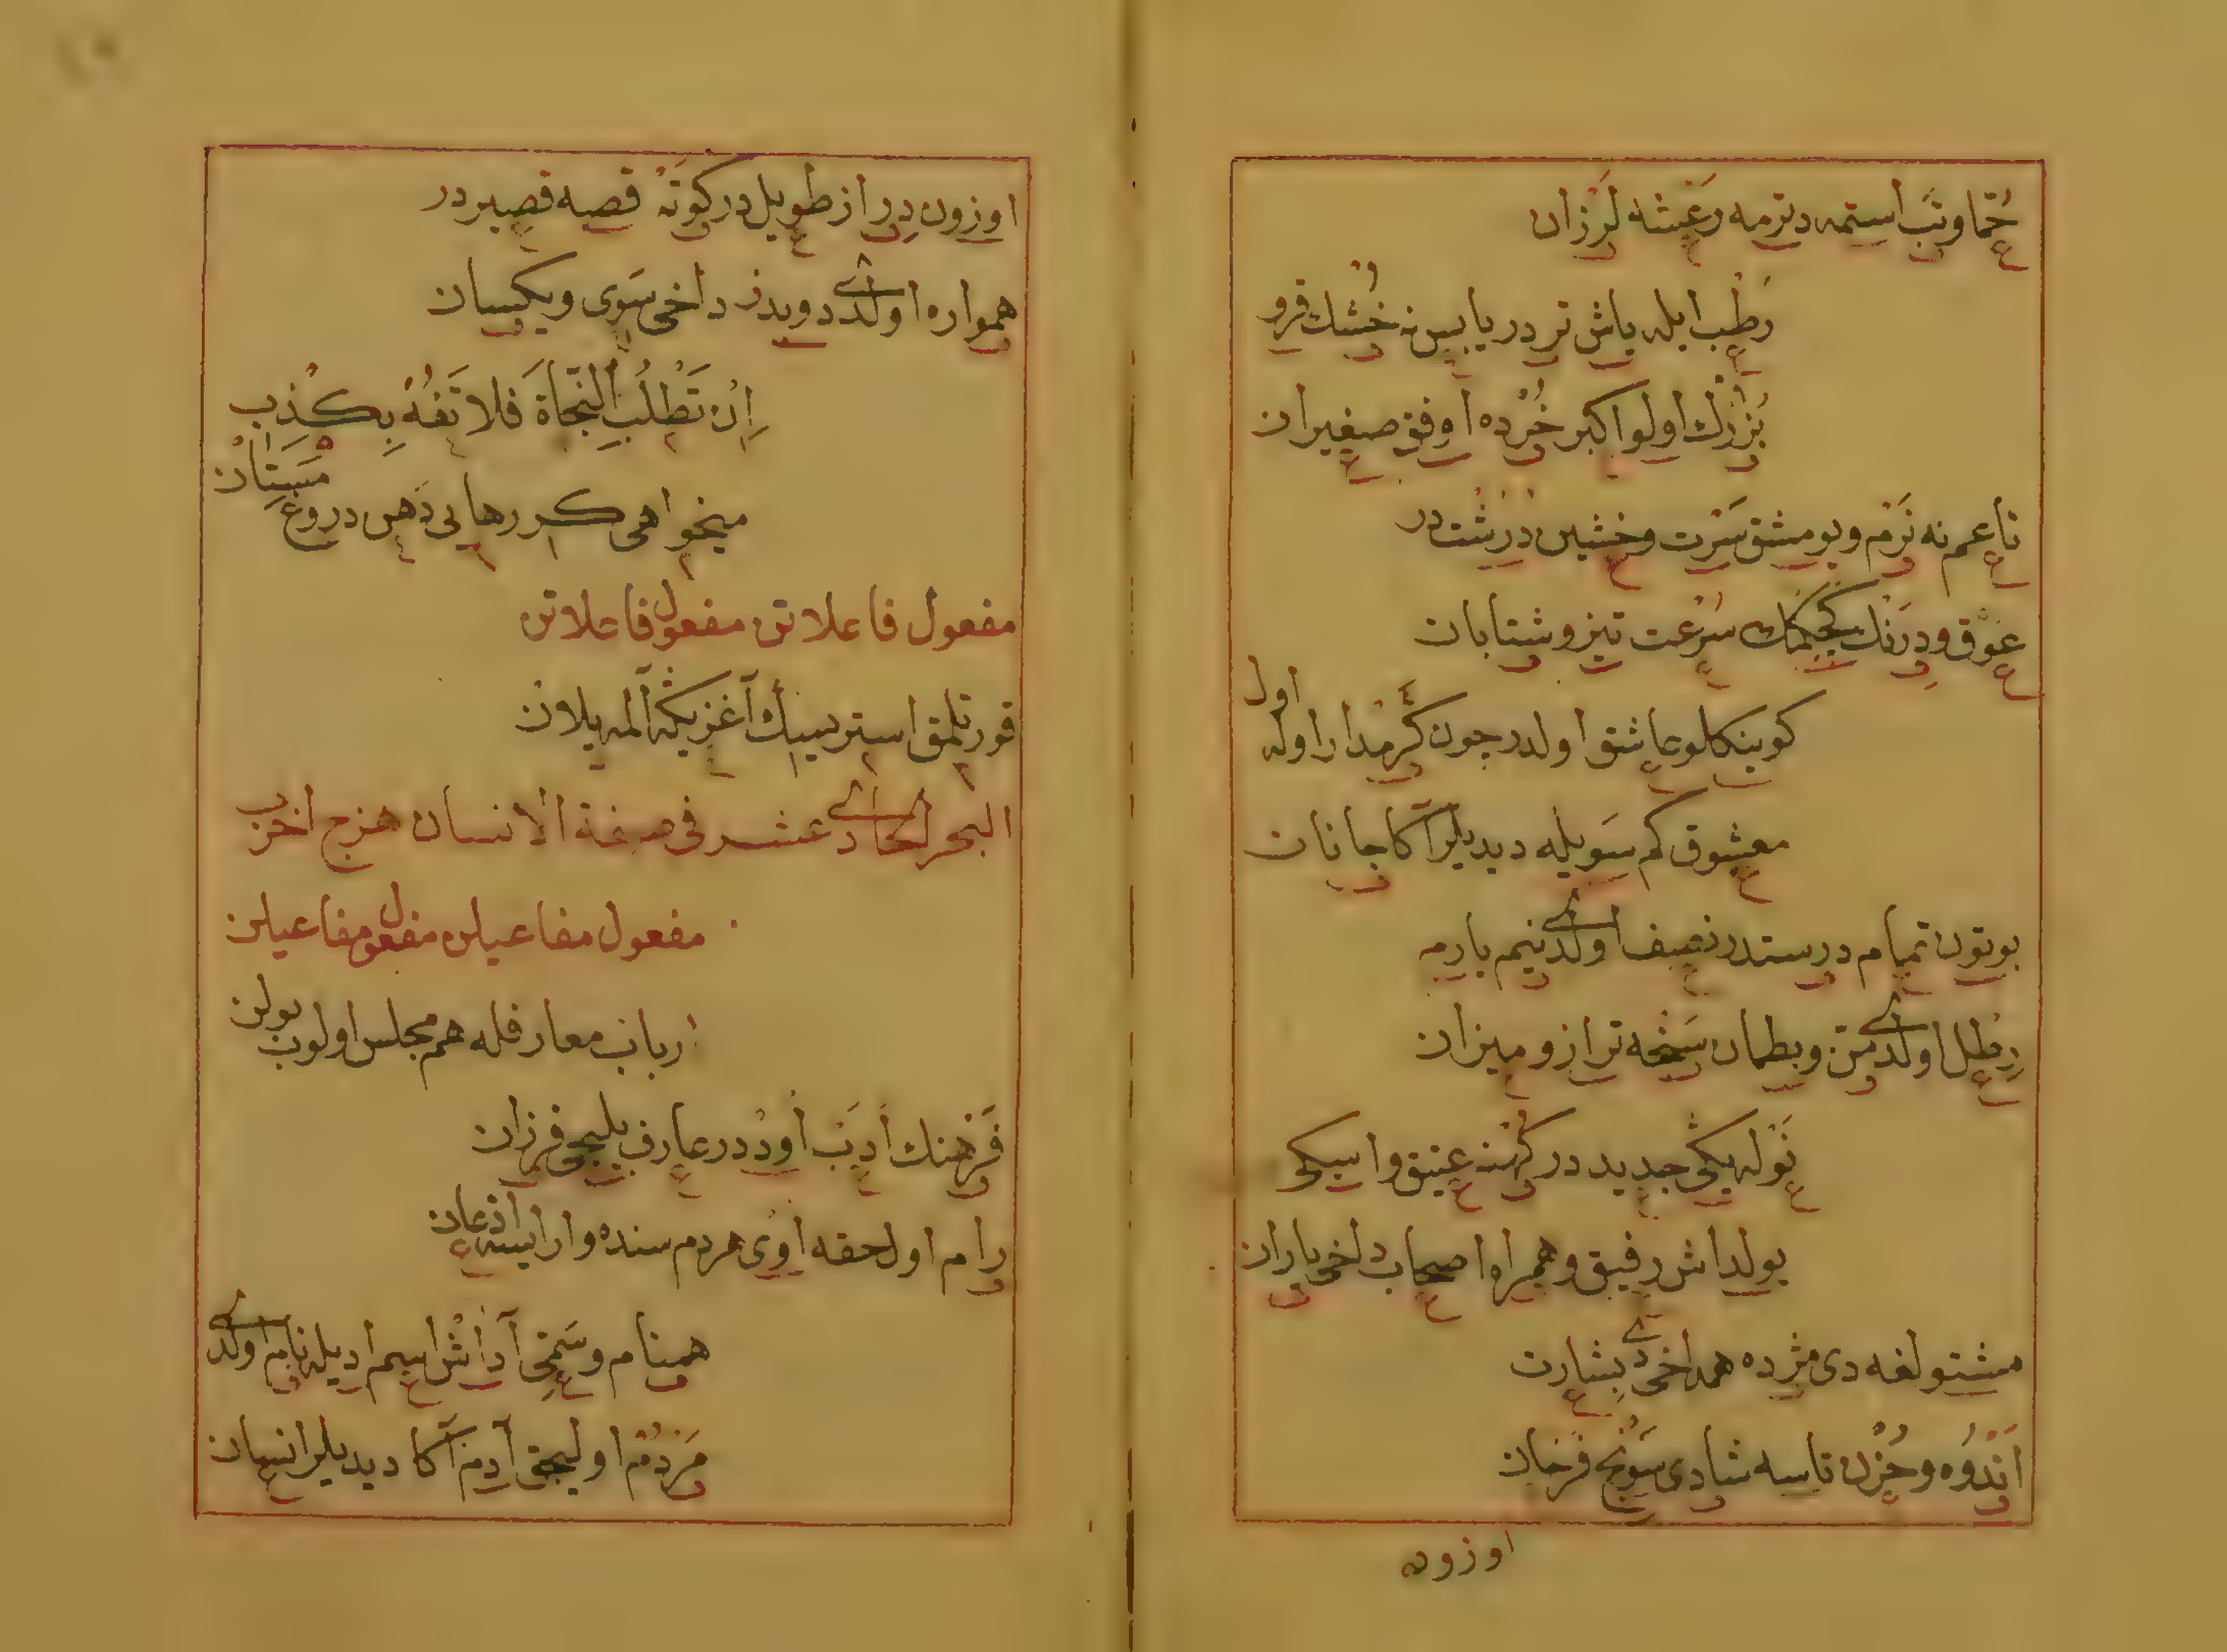 حُمّا و تَب استمه دترمه رَعْشه لَرْزان
رَطْب ايله ياش تر در يابس نه خُشْك قرو
بُزُرْك اولو اكبر خُرْده اوفق صغيران
ناعم نه نَرْم و يومشق سَرْت و خشين دُرُشْت در
عَوْق و دِرَنْك كجكمك سُرْعت تيز و شتابان
كوينكلو عاشق اولدر چون كَرْمدار اوله اول
معشوق كم سَويله ديديلر آكا جانان
بوتون تمام درستدر نصيف اولدى نيم يارمه
رِطْل اولدى مَنّ و بطمان سَخْته ترازو ميزان
نَوْ له يكى جديد در كُهْنه عتيق و اسكى
يولداش رفيق و همراه اصحاب دخى ياران
مشتولغه دى مژده هم دخى بشارت
اَنْدُوه و حُزْن تاسه شادى سَوِنْج فَرْحان
اوزون
اوزون دِراز طويل در كُوتَه قصيه قصير در
همواره اولدى دويدز دخى سَوِى و يكسان
اِنْ تَطْلُبِ النَّجاةَ فَلا تَفُهْ بِكِذْبٍ
ميخواهى كر رهايى دَهن دروغ مَسِتان
مفعول فاعلاتن مفعول فاعلاتن
قورتلمق استرسك آغزيكه آلمه يلان
البحر الحادى عشر فى صبغة الانسان هزج اخرب
مفعول مفاعيلن مفعول مفاعيلن
ارباب معارفله هم مجلس اولوب بولن
فَرْهنك اَدِيب اوددر عارف بيليجى فرزان
رام اول حقه اوى هر دم سنده وار ايسه اذعان
همنام و سَمِى آداش اسم اديله نام اولدى
مَرْدُم اوليجق آدم آكا ديديلر انسان